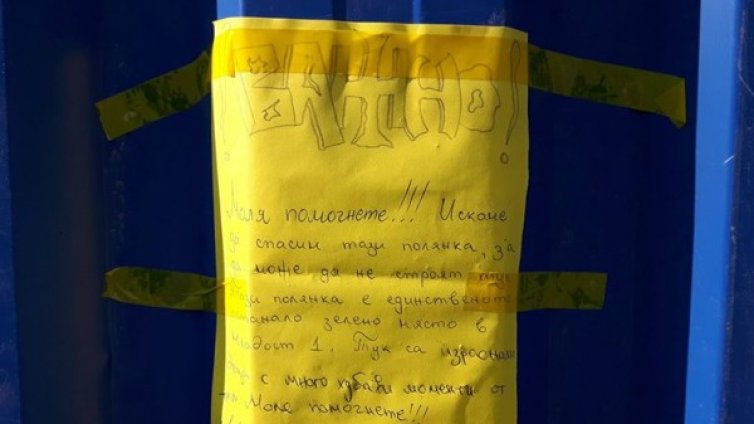 !ВАЖНО!
Моля помогнете!!! Искаме
да спасим тази полянка, за
да може да не строят тук
Тази полянка е единственото
останало зелено място в
Младост 1. Тук са израснали
с много хубави моменти от
Моля помогнете!!!